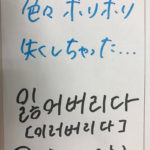 色々 ポリポリ
失くしちゃった…
잃어버리다
[이러버리다]